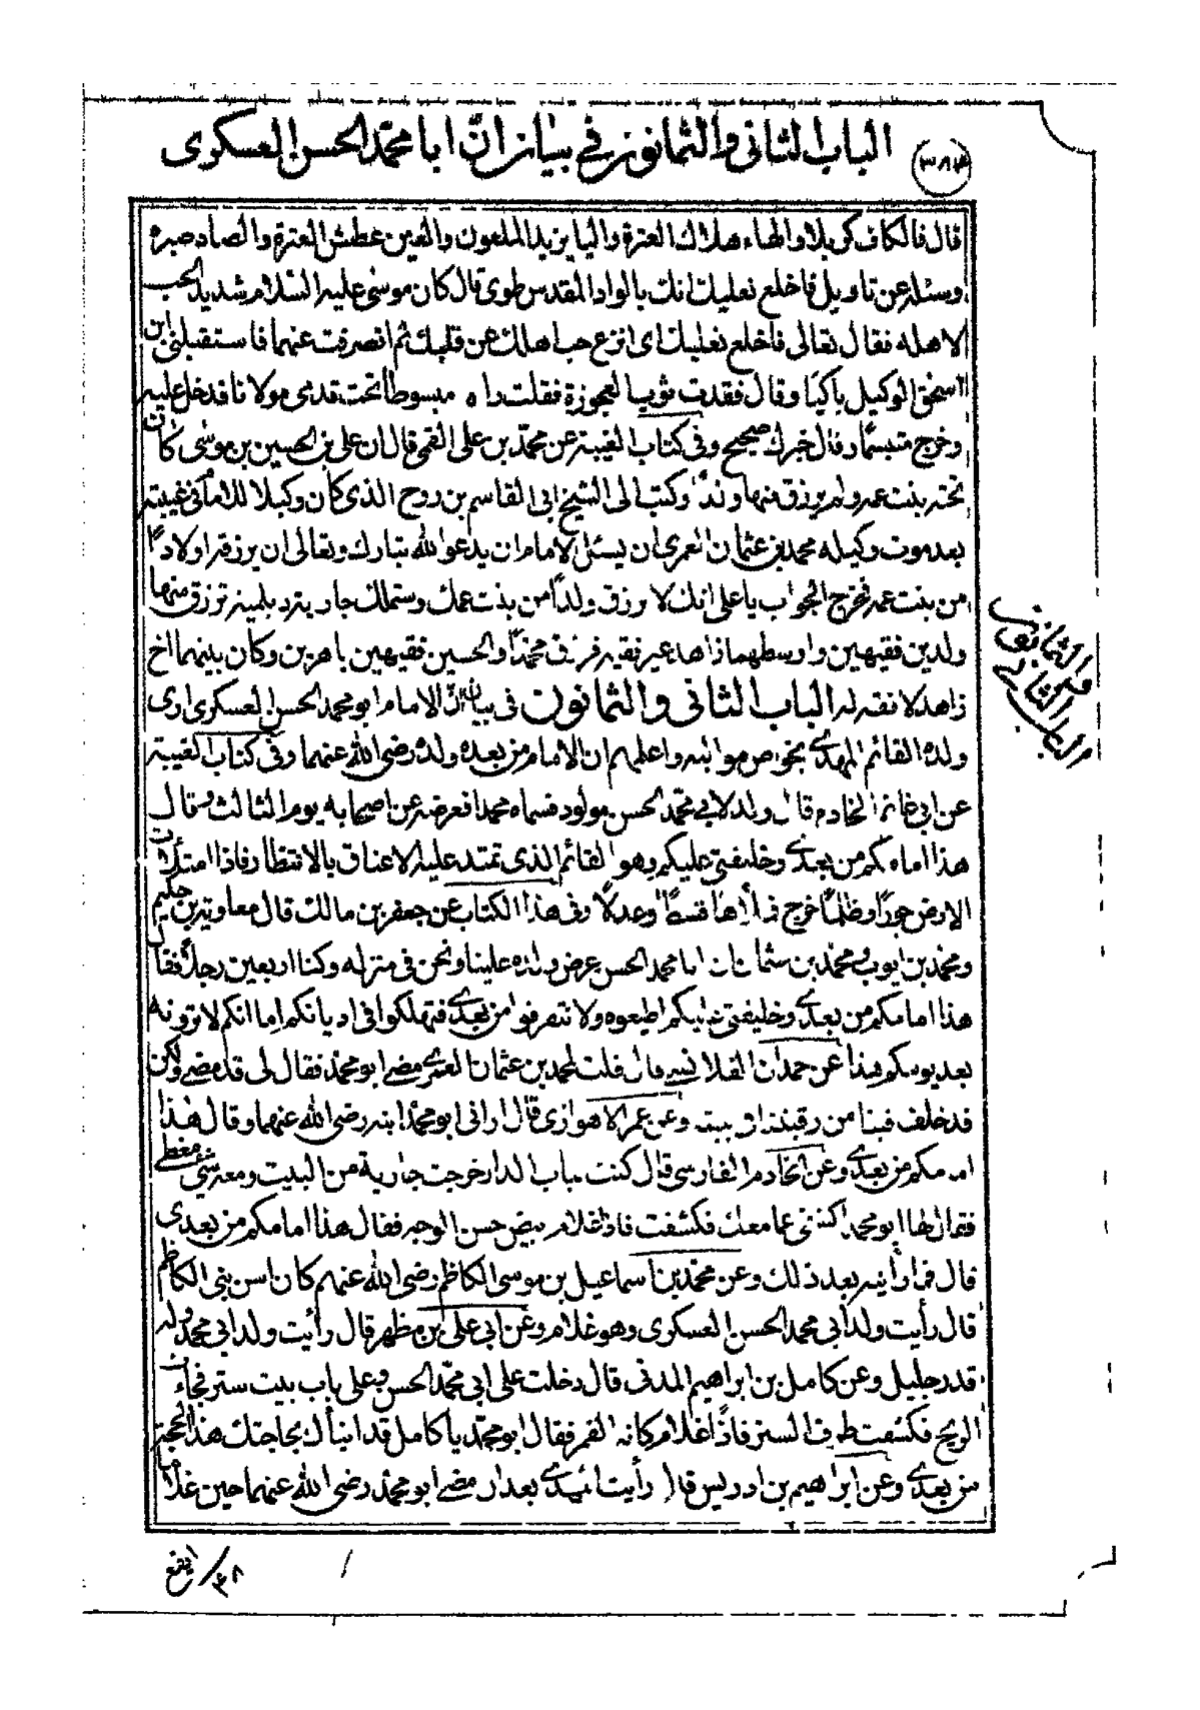 الباب الثانی والثمانون فی بیان انّ ابا محمّد الحسن العسکری
قال فالکاف کربلا والهاء هلاك العترة والیا یزید الملعون والعین عطش العترة والصاد صبره
وسئله عن تاویل فاخلع نعلیك انك بالواد المقدس طوی قال کان موسی علیه السلام شدید الحب
لاهله فقال تعالی فاخلع نعلیك ای انزع حب اهلك عن قلبك ثم انصرفت عنهما فاستقبلنی ابن
اسحق الوکیل باکیا وقال فقدت ثوبا لعجوزة فقلت راه مبسوطا تحت قدمی مولانا فدخل علیه
وخرج متبسما وقال خبرك صحیح وفی کتاب الغیبة عن محمّد بن علی القمی قال ان علی بن الحسین بن موسی کان
تحته بنت عمه ولم یرزق منها ولدا وکتب الی الشیخ ابی القاسم بن روح الذی کان وکیلا للامام فی غیبته
بعد موت وکیله محمد بن عثمان العمری ان یسئل الامام ان یدعو الله تبارك وتعالی ان یرزقه اولادًا
من بنت عمه فخرج الجواب یا علی انك لا رزق ولدًا من بنت عمك وستملك جاریة دیلمیة ترزق منها
ولدین فقیهین واوسطهما زاهد غیر فقیه فرزق محمدًا والحسین فقیهین ماهرین وکان بینهما اخ
زاهد لا فقه له الباب الثانی والثمانون فی بیان انّ الامام ابو محمد الحسن العسکری اری
ولده القائم المهدی بخواص موالیه واعلمهم ان الامام من بعده ولده رضی الله عنهما وفی کتاب الغیبة
عن ابی غانم الخادم قال ولد لابی محمّد الحسن مولود فسماه محمدا فعرضه عن اصحابه یوم الثالث وقال
هذا امامکم من بعدی وخلیفتی علیکم وهو القائم الذی تمتد علیه الاعناق بالانتظار فاذا امتلات
الارض جورًا وظلمًا خرج فملأها قسطًا وعدلًا وفی هذا الکتاب عن جعفر بن مالك قال معاویة بن حکیم
ومحمد بن ایوب ومحمد بن عثمان ان ابا محمد الحسن عرض ولده علینا ونحن فی منزله وکنا اربعین رجلًا فقال
هذا امامکم من بعدی وخلیفتی علیکم اطیعوه ولا تتفرقوا من بعدی فتهلکوا فی ادیانکم اما انکم لا ترونه
بعد یومکم هذا عن حمدان القلانسی قال قلت لمحمد بن عثمان العمری مضی ابو محمّد فقال لی قد مضی ولکن
قد خلف فینا من رقبته وعن عمر الاهوازی قال ارانی ابو محمّد ابنه رضی الله عنهما وقال هذا
امامکم من بعدی وعن الخادم الفارسی قال کنت بباب الدار خرجت جاریة من البیت ومعه شئ مغطی
فقال لها ابو محمد اکشفی عما معك فکشفت فاذا غلام بیض حسن الوجه فقال هذا امامکم من بعدی
قال فما رأیته بعد ذلك وعن محمّد بن اسماعیل بن موسی الکاظم رضی الله عنهم کان اسن بنی الکاظم
قال رأیت ولد ابی محمد الحسن العسکری وهو غلام وعن ابی علی بن مطهر قال رأیت ولد ابی محمد وله
قدر جلیل وعن کامل بن ابراهیم المدنی قال دخلت علی ابی محمّد الحسن وعلی باب بیت ستر فجاءت
الریح فکشفت طرف الستر فاذًا غلام کانه القمر فقال ابو محمّد یا کامل قد انبأك بحاجتك هذا الحجة
من بعدی وعن ابراهیم بن ادریس قال رأیت المهدی بعد ان مضی ابو محمّد رضی الله عنهما حین غلام
الباب الثانی والثمانون